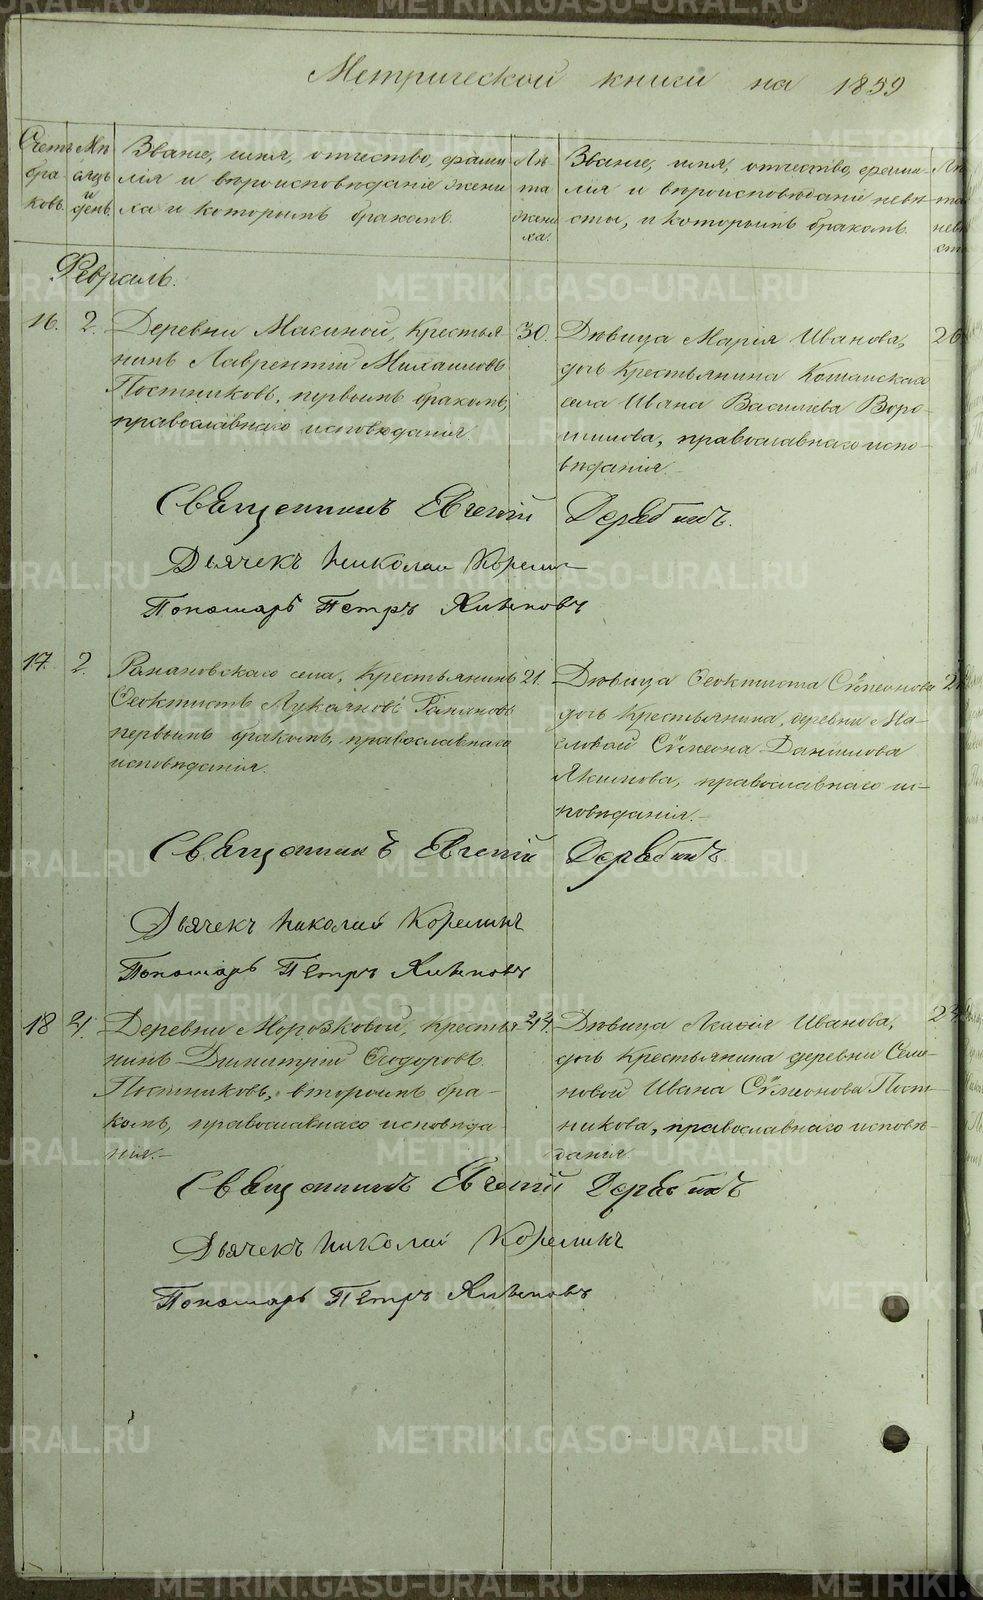 Метрической книги на 1859
Счетъ бра ковъ.
Мѣ сяцъ и день.
Званіе, имя, отчество, фами
лія и вѣроисповѣданіе жени
ха и которымъ бракомъ.
Лѣ та жени ха.
Званіе, имя, отчество, фами-
лія и вѣроисповѣданіе невѣ-
сты, и которымъ бракомъ.
Лѣ та невѣ сты
Февраль.
16. 2. Деревни Масиной, Крестья
нинъ Лаврентій Михаиловъ
Постниковъ, первымъ бракомъ,
православнаго исповѣданія.
30.
Дѣвица Марія Иванова,
дочь Крестьянина Кошайскаго
села Ивана Василева Воро-
шилова, православнаго испо-
вѣданія.-
26
Священникъ Евгеній Дерябинъ.
Дьячекъ Николай Корелин
Пономарь Петръ
17. 2. села, Крестьянинъ
Ѳеоктистъ Лукіяновъ
первымъ бракомъ, православнаго
исповѣданія.
21.
Дѣвица Ѳеоктиста Сѵмеонова
дочь Крестьянина, деревни Ма-
словой Сѵмеона Даніилова
Якимова, православнаго ис-
повѣданія.-
Священникъ Евгеній Дерябинъ.
Дьячекъ Николай Корелинъ
Пономарь Петръ
18 4. Деревни Морозковой, Крестья
нинъ Димитрій Ѳеодоровъ
Постниковъ, вторымъ бра-
комъ, православнаго исповѣда
нія.-
Дѣвица Иванова,
дочь Крестьянина деревни Семе-
новой Ивана Сѵмеонова Пост-
никова, православнаго исповѣ-
данія.
Священникъ Евгеній Дерябинъ
Дьячекъ Николай Корелинъ
Пономарь Петръ
METRIKI.GASO-URAL.RU